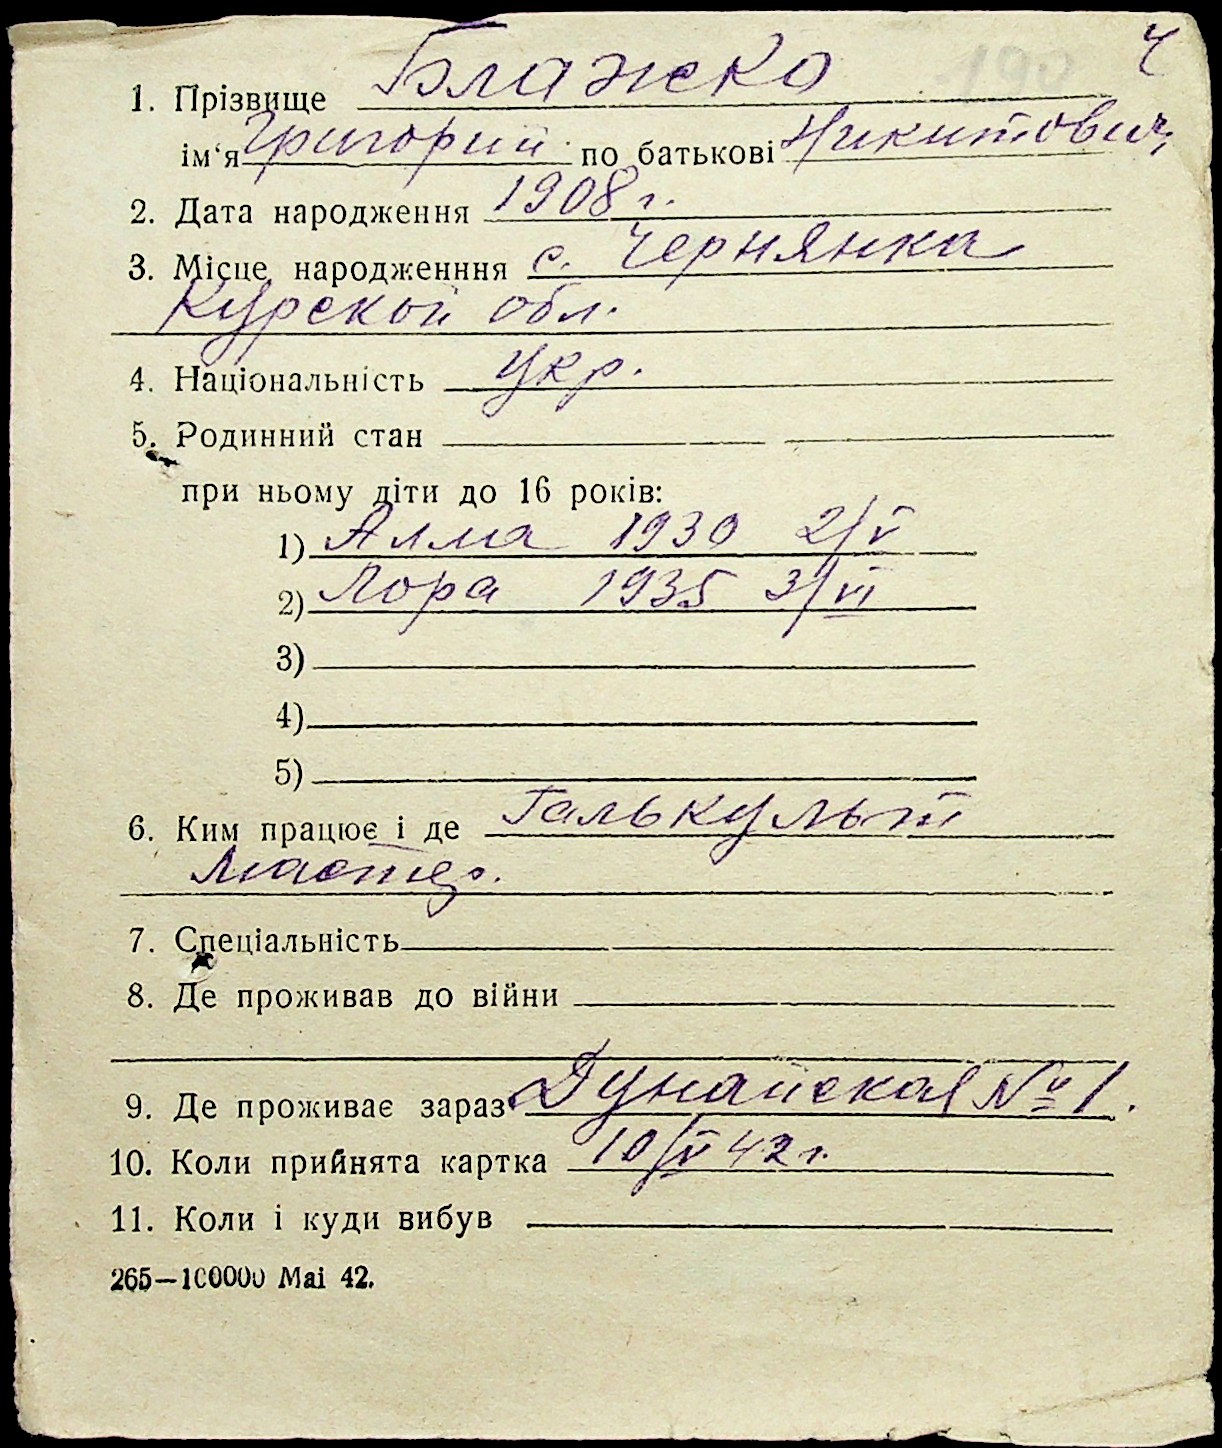 4
1. Прізвище Блажко
ім'я Григорий по батькові Никитович
2. Дата народження 1908 г.
3. Місце народженння с. Чернянка
Курской обл.
4. Національність укр.
5. Родинний стан
при ньому діти до 16 років:
1) Алма 1930 2/V
2) Лора 1935 3/VI
3)
4)
5)
6. Ким працює і де Галькульт
мастер.
7. Спеціальність
8. Де проживав до війни
9. Де проживає зараз Дунайская № 1.
10. Коли прийнята картка 10/V 42 г.
11. Коли і куди вибув
265—100000 Mai 42.